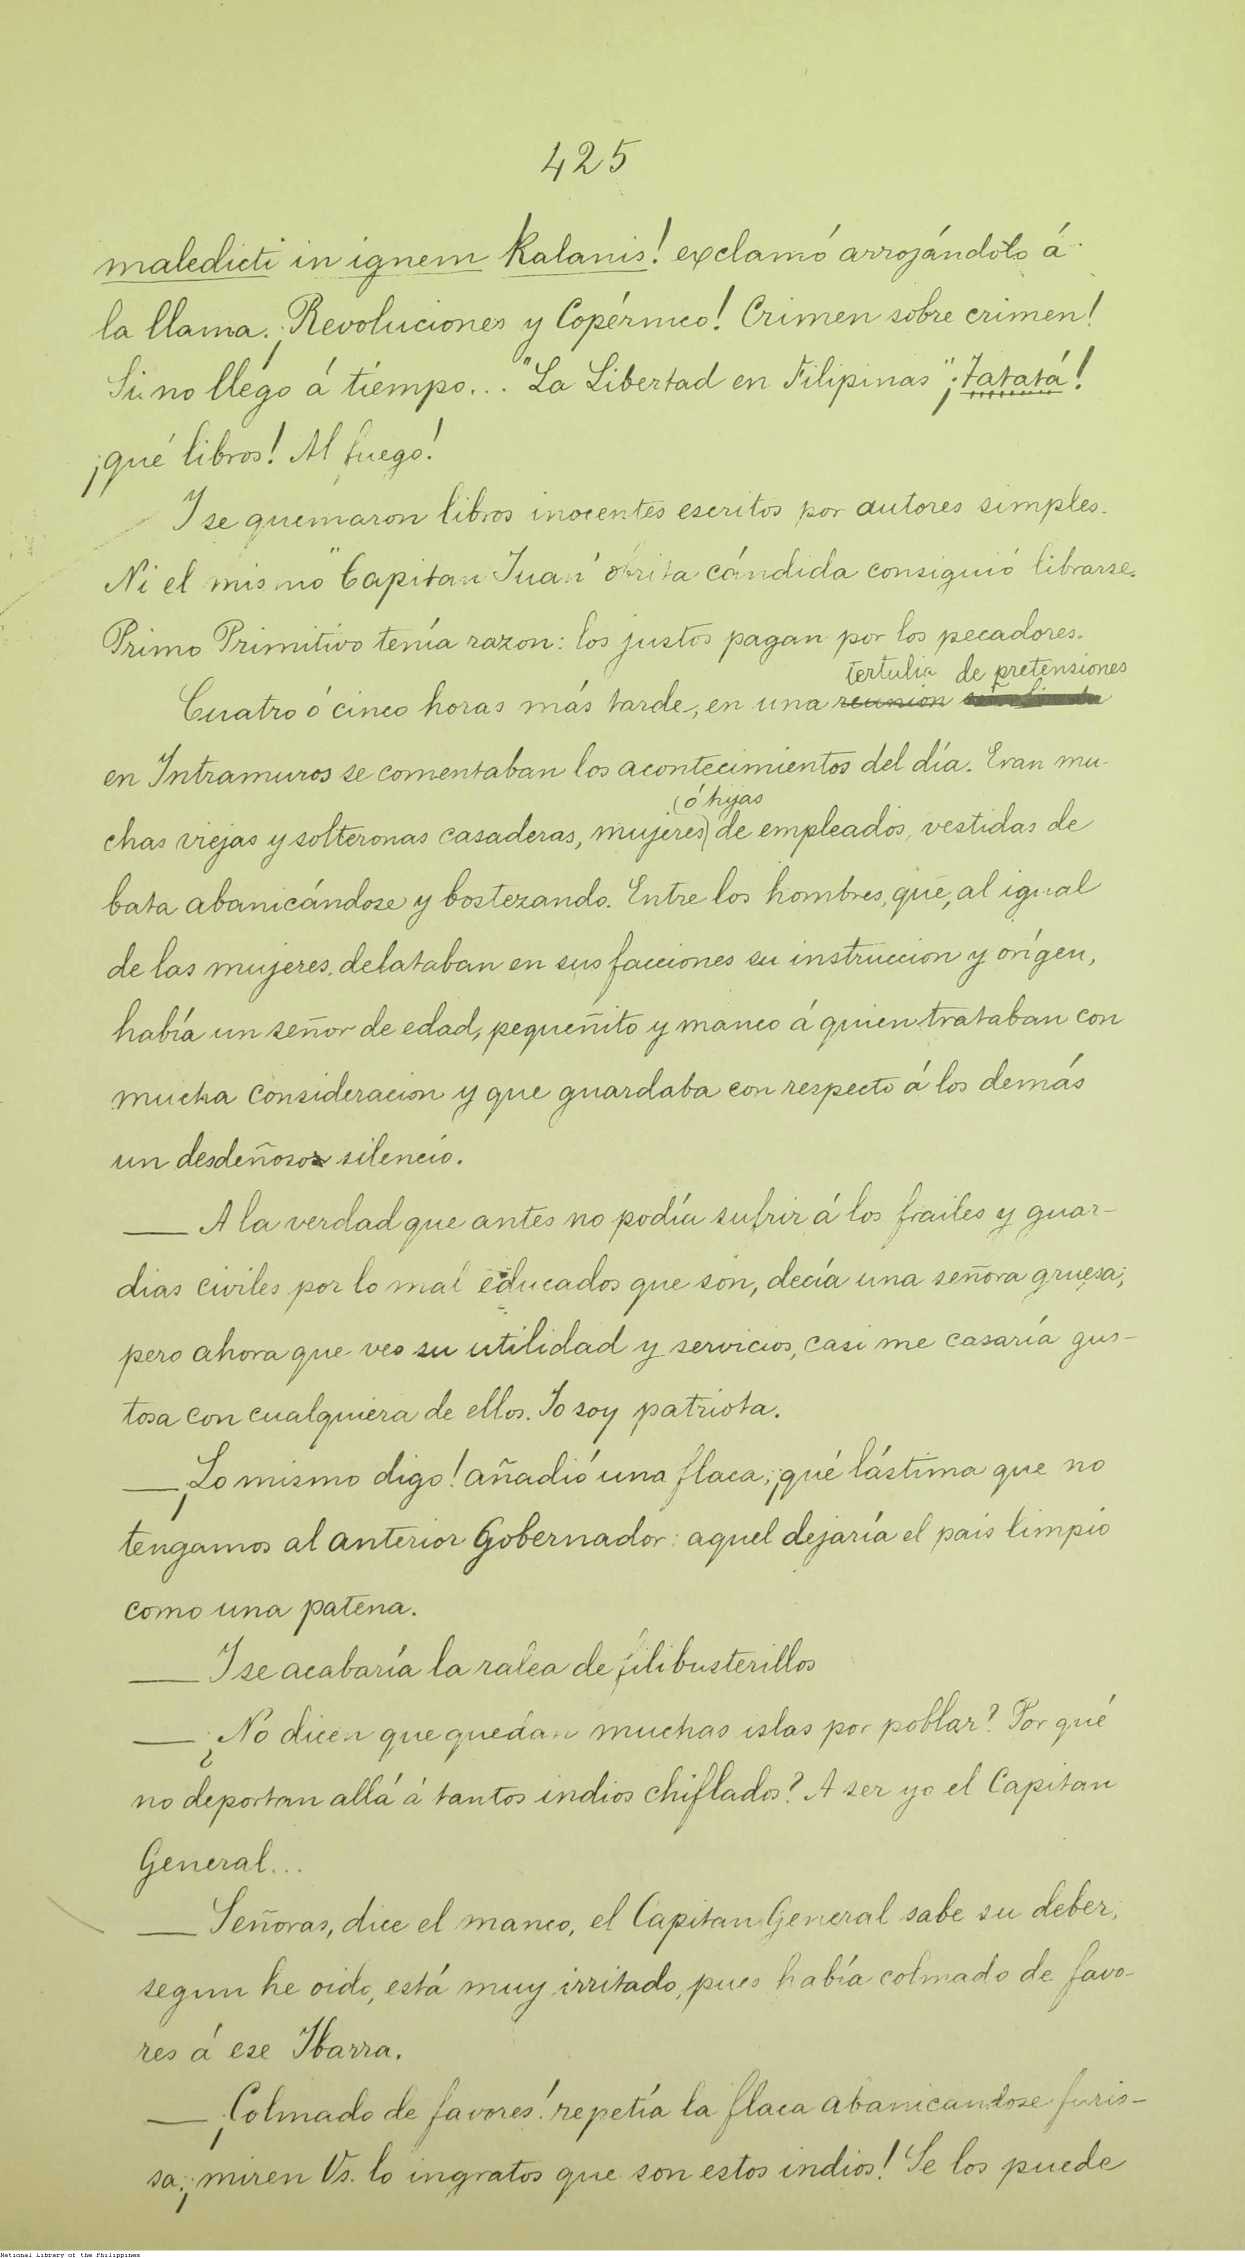 425
maledicti in ignem Kalanis! exclamó arrojándolo á
la llama. ¡Revoluciones y Copérnico! Crimen sobre crimen!
Si no llego á tiempo... "La Libertad en Filipinas" ¡Tatatá!
¡qué libros! Al fuego!
Y se quemaron libros inocentes escritos por autores simples.
Ni el mismo "Capitan Juan" obrita cándida consiguió librarse.
Primo Primitivo tenía razon: los justos pagan por los pecadores.
tertulia de pretensiones
Cuatro ó cinco horas más tarde, en una reunion
en Intramuros se comentaban los acontecimientos del día. Eran mu-
(ó hijas
chas viejas y solteronas casaderas, mujeres) de empleados, vestidas de
bata abanicándose y bostezando. Entre los hombres, que, al igual
de las mujeres, delataban en sus facciones su instruccion y orígen,
había un señor de edad, pequeñito y manco á quien trataban con
mucha consideracion y que guardaba con respecto á los demás
un desdeñoso silencio.
— A la verdad que antes no podía sufrir á los frailes y guar-
dias civiles por lo mal educados que son, decía una señora gruesa;
pero ahora que veo su utilidad y servicios, casi me casaría gus-
tosa con cualquiera de ellos. Yo soy patriota.
— ¡Lo mismo digo! añadió una flaca; ¡qué lástima que no
tengamos al anterior Gobernador: aquel dejaría el pais limpio
como una patena.
— Y se acabaría la ralea de filibusterillos
— ¿No dicen que quedan muchas islas por poblar? Por qué
no deportan allá á tantos indios chiflados? A ser yo el Capitan
General...
— Señoras, dice el manco, el Capitan General sabe su deber;
segun he oido, está muy irritado, pues había colmado de favo-
res á ese Ibarra.
— ¡Colmado de favores! repetía la flaca abanicandose furio-
sa; ¡miren Vs. lo ingratos que son estos indios! Se los puede
National Library of the Philippines